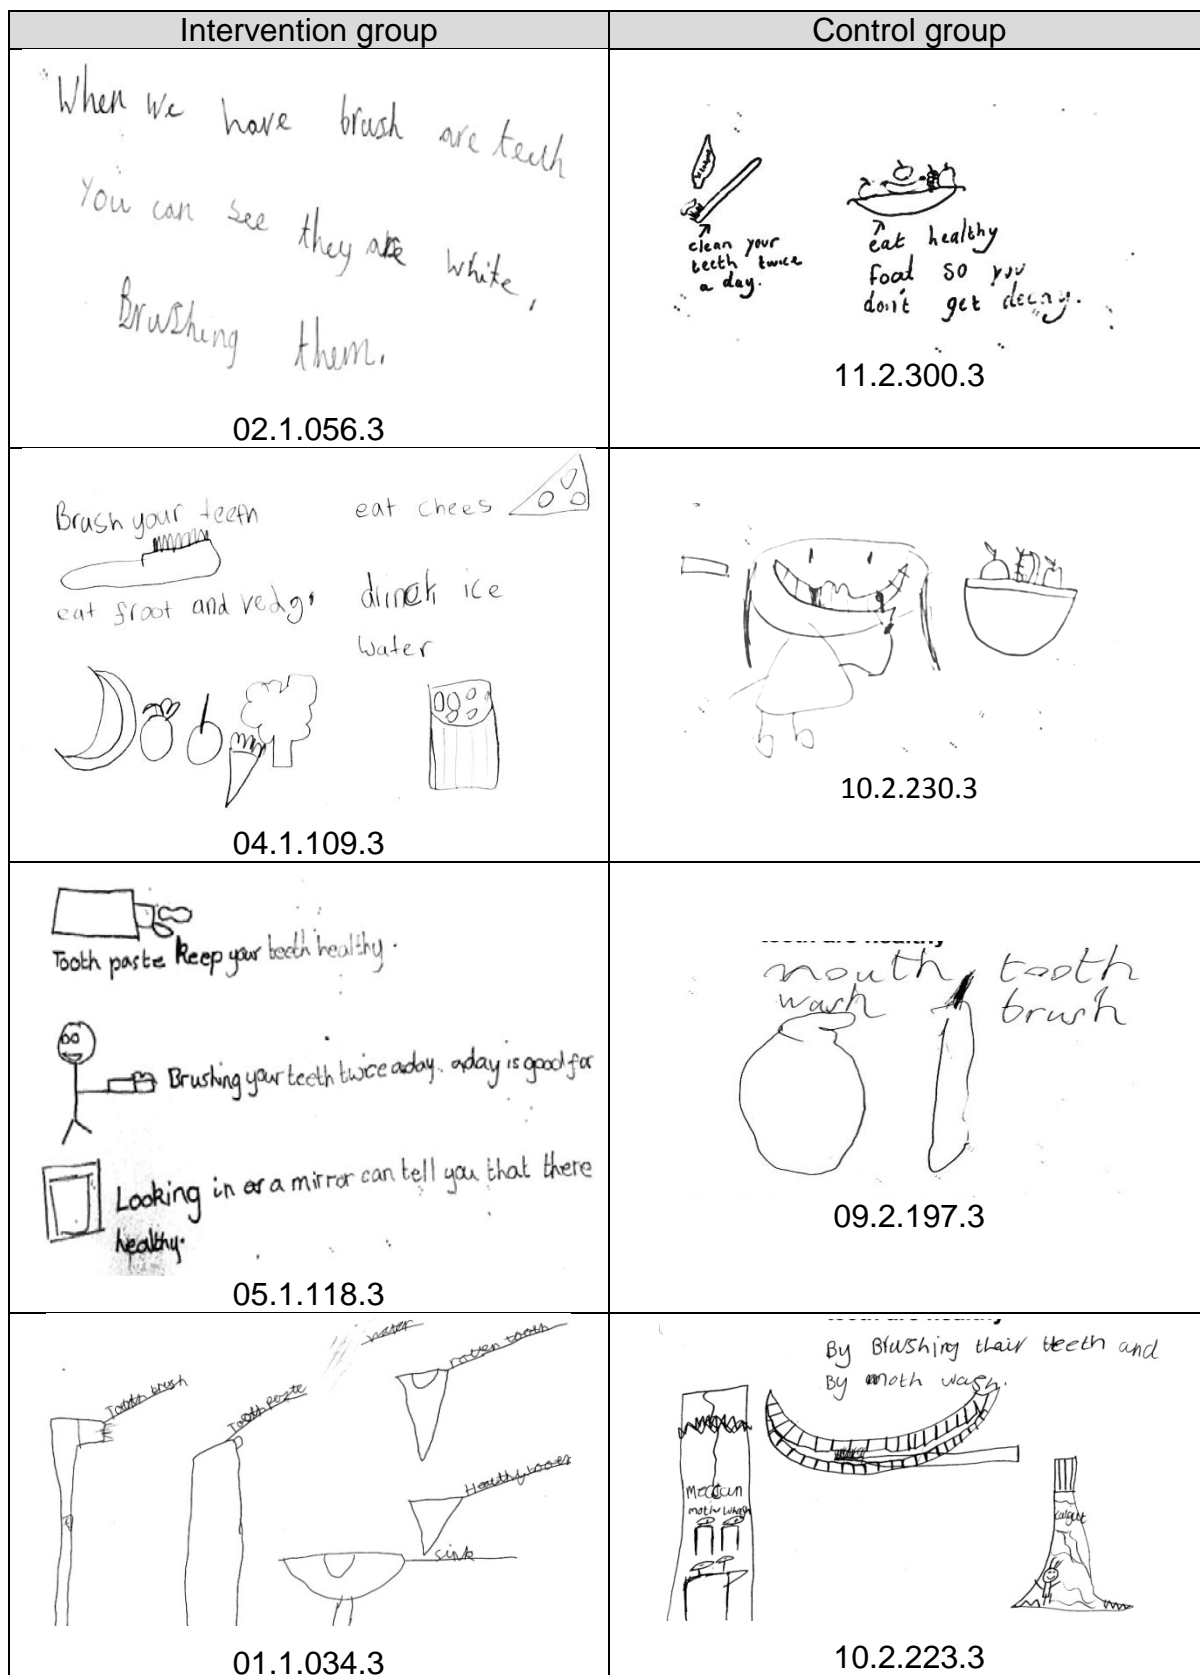 Intervention group
Control group
When we have brush are teeth
You can see they are white,
Brushing them.
02.1.056.3
clean your
teeth twice
a day.
eat healthy
food so you
don't get decay.
11.2.300.3
Brush your teeth
eat froot and vedg.
eat chees
drinck ice
water
04.1.109.3
10.2.230.3
Tooth paste keep your teeth healthy.
Brushing your teeth twice aday. aday is good for
Looking in or a mirror can tell you that there
healthy.
05.1.118.3
teeth are healthy
mouth
wash
tooth
brush
09.2.197.3
Tooth brush
Tooth paste
water
rotten tooth
Healthy
sink
01.1.034.3
teeth are healthy
By Brushing thair teeth and
By moth wash.
moth whash
colgate
10.2.223.3